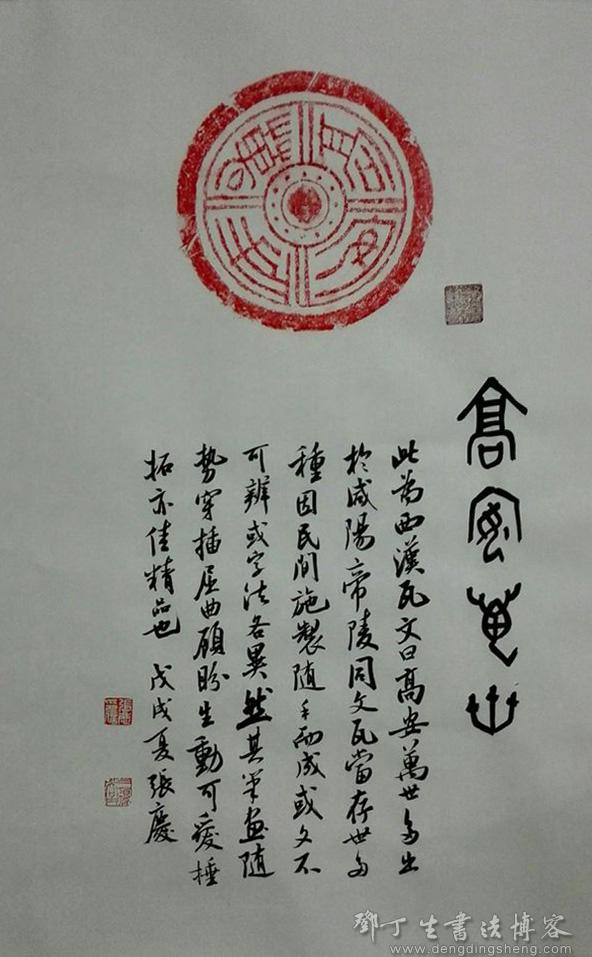 高安萬世
此為西漢瓦文曰高安萬世多出
於咸陽帝陵同文瓦當存世多
種因民間施製隨手而成或文不
可辨或字法各異然其筆畫隨
勢穿插屈曲顧盼生動可愛棰
拓亦佳精品也 戊戌夏張慶
鄧丁生書法博客
www.dengdingsheng.com